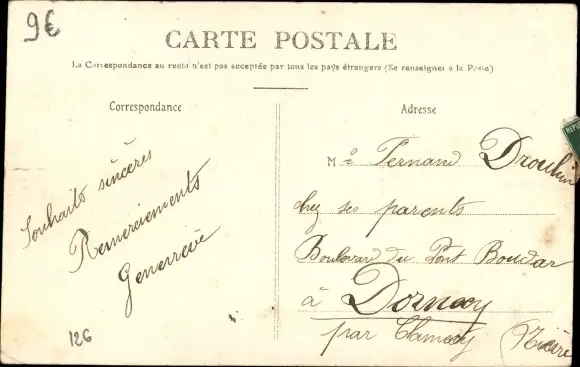 9€
CARTE POSTALE
La Correspondance au recto n'est pas acceptée par tous les pays étrangers (Se renseigner à la Poste)
Correspondance
Adresse
Souhaits sincères
Remerciements
Geneviève
126
M Fernand Drouhin
chez ses parents
Boulevard du Pont Boudar
à Dornecy
par Clamecy (Nièvre